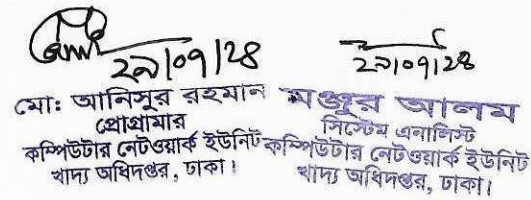 ২৯|০৭|২৪
মো: আনিসুর রহমান
প্রোগ্রামার
কম্পিউটার নেটওয়ার্ক ইউনিট
খাদ্য অধিদপ্তর, ঢাকা।
২৯|০৭|২৪
মঞ্জুর আলম
সিস্টেম এনালিস্ট
কম্পিউটার নেটওয়ার্ক ইউনিট
খাদ্য অধিদপ্তর, ঢাকা।